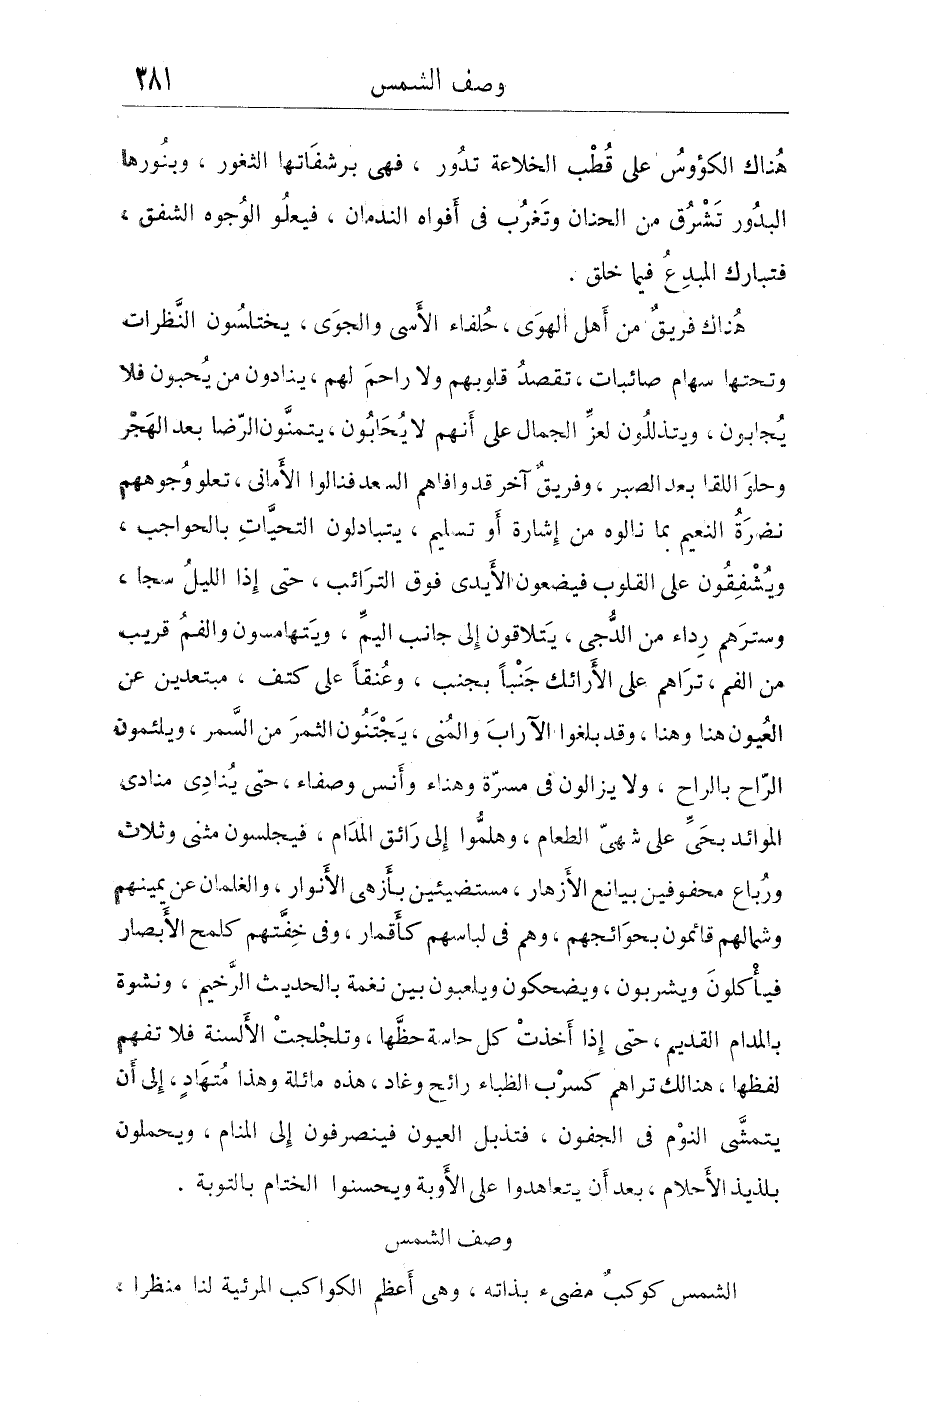 وصف الشمس ٣٨١
هُناك الكؤوسُ على قُطْب الخلاعة تدُور ، فهى برشفَاتها الثغور ، وبنُورها
البدُور تَشْرُق من الحنان وتَغرُب فى أَفواه الندمان ، فيعلُو الوُجوه الشفق ،
فتبارك المبدِعُ فيما خلق .
هُناك فريقٌ من أَهل الهوَى ، حُلفاء الأَسى والجوَى ، يختلسُون النَّظرات
وتحتها سهام صائبات ، تقصدُ قلوبهم ولا راحمَ لهم ، ينادون من يُحبون فلا
يُجابون ، ويتذللُون لعزِّ الجمال على أَنهم لا يُحَابُون ، يتمنَّون الرّضا بعد الهَجْر
وحلوَ اللقا بعد الصبر ، وفريقٌ آخر قد وافاهم السعد فنالوا الأَمانى ، تعلو وُجوههم
نضرَةُ النعيم بما نالوه من إِشارة أَو تسليم ، يتبادلون التحيَّاتِ بالحواجب ،
ويُشْفِقُون على القلوب فيضعون الأَيدى فوق الترَائب ، حتى إِذا الليلُ سجا ،
وسترَهم رِداء من الدُّجى ، يَتلاقون إِلى جانب اليمِّ ، ويَتهامسون والفمُ قريب
من الفم ، ترَاهم على الأَرائك جَنْباً بجنب ، وعُنقاً على كتف ، مبتعدين عن
العُيون هنا وهنا ، وقد بلغوا الآرابَ والمُنى ، يَجْتَنُون الثمرَ من السَّمر ، ويلثمون
الرّاح بالراح ، ولا يزالون فى مسرّة وهناء وأَنس وصفاء ، حتى يُنادِى منادى
الموائد بحَىِّ على شهىّ الطعام ، وهلمُّوا إِلى رَائق المدَام ، فيجلسون مثنى وثلاث
ورُباع محفوفين بيانع الأَزهار ، مستضيئين بأَزهى الأَنوار ، والغلمان عن يمينهم
وشمالهم قائمون بحوَائجهم ، وهم فى لباسهم كأَقمار ، وفى خِفَّتهم كلمح الأَبصار
فيأْكلونَ ويشربون ، ويضحكون ويلعبون بين نغمة بالحديث الرَّخيم ، ونشوة
بالمدام القديم ، حتى إِذا أَخذتْ كل حاسة حظَّها ، وتلجْلجتْ الأَلسنة فلا تفهم
لفظها ، هنالك تراهم كسرْب الظباء رائح وغاد ، هذه مائلة وهذا مُتهَادٍ ، إِلى أَن
يتمشَّى النوْم فى الجفون ، فتذبل العيون فينصرفون إِلى المنام ، ويحملون
بلذيذ الأَحلام ، بعد أَن يتعاهدوا على الأَوبة ويحسنوا الختام بالتوبة .
وصف الشمس
الشمس كوكبٌ مضىء بذاته ، وهى أَعظم الكواكب المرئية لنا منظرا ،